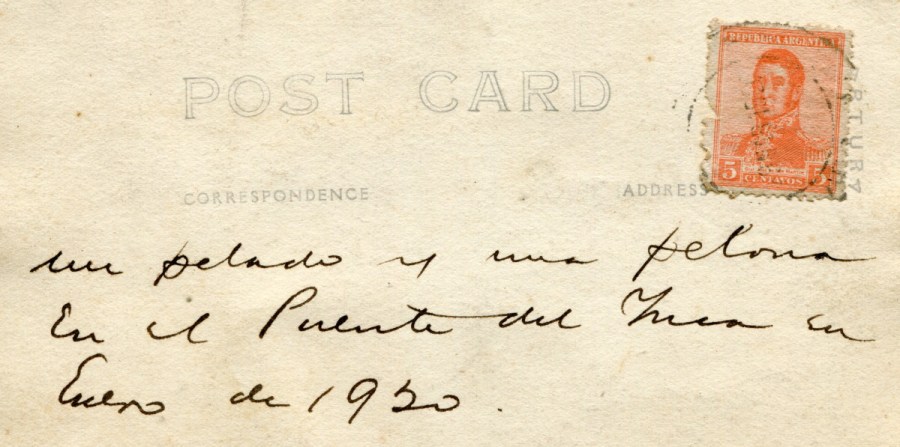 POST CARD
REPUBLICA ARGENTINA
5 CENTAVOS 5
CORRESPONDENCE
ADDRESS
un pelado y una pelona
En el Puente del Inca en
Enero de 1920.